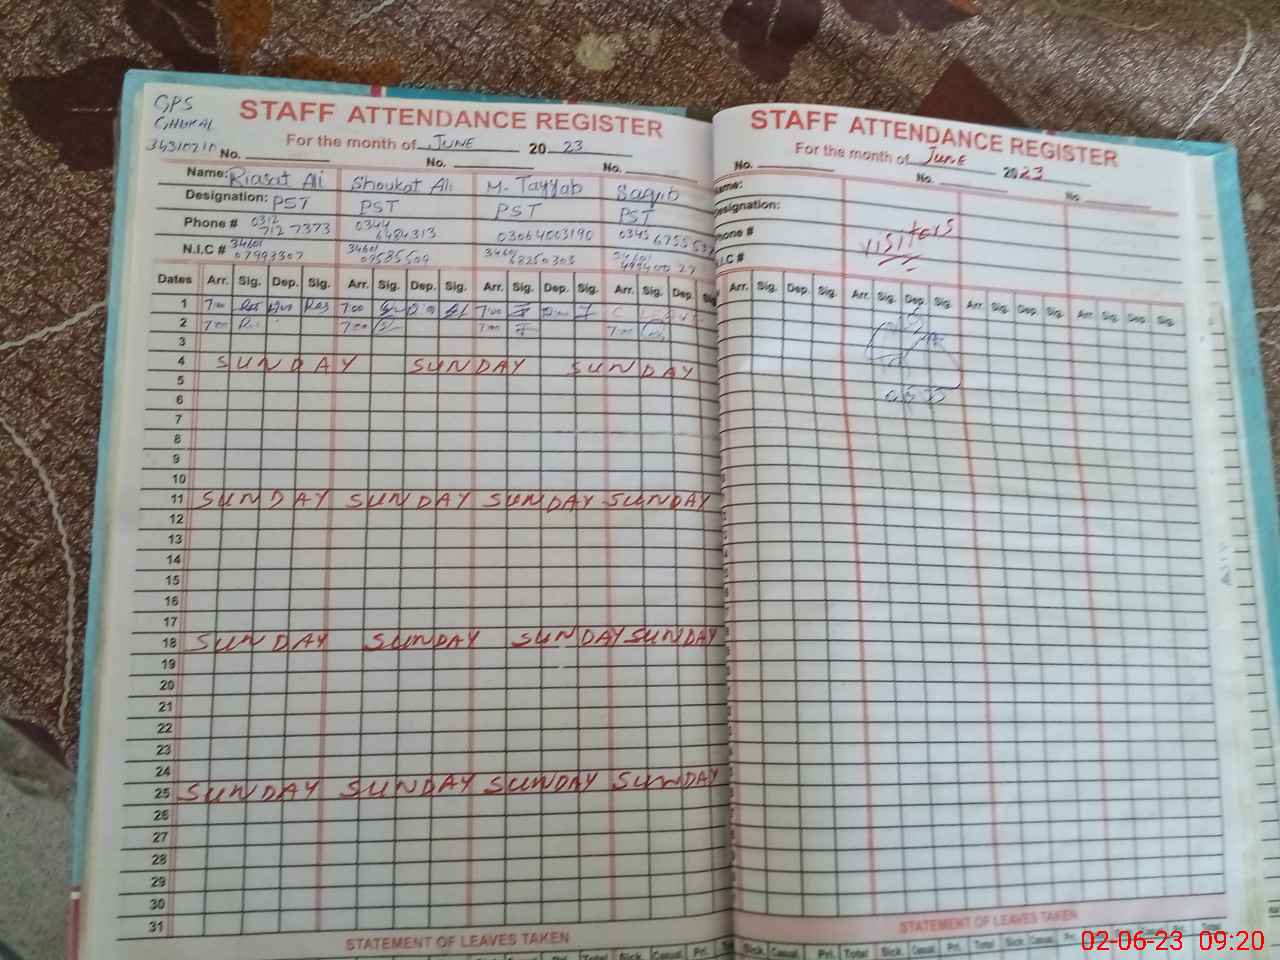 GPS
GHUKAL
34310210
STAFF ATTENDANCE REGISTER
For the month of JUNE 2023
No. No. No.
Name: Riasat Ali Shoukat Ali M. Tayyab Saqib
Designation: PST PST PST PST
Phone # 0312 7127373 0344 6484313 03064003190 0345
N.I.C # 34601 07993307 34601 09585509 68250303
Dates Arr. Sig. Dep. Sig. Arr. Sig. Dep. Sig. Arr. Sig. Dep. Sig. Arr. Sig. Dep. Sig
1 7:00 7:00 7:00 C LEAVE
2 7:00 7:00 7:00 7:00
3
4 SUNDAY SUNDAY SUNDAY
5
6
7
8
9
10
11 SUNDAY SUNDAY SUNDAY SUNDAY
12
13
14
15
16
17
18 SUNDAY SUNDAY SUNDAY SUNDAY
19
20
21
22
23
24
25 SUNDAY SUNDAY SUNDAY SUNDAY
26
27
28
29
30
31
STATEMENT OF LEAVES TAKEN
STAFF ATTENDANCE REGISTER
For the month of June 2023
No. No. No.
ame:
esignation:
hone #
.I.C #
visiters
Arr. Sig. Dep. Sig. Arr. Sig. Dep. Sig. Arr. Sig. Dep. Sig. Arr. Sig. Dep. Sig.
STATEMENT OF LEAVES TAKEN
Sick. Casual. Pri. Total Sick. Casual. Pri. Total
02-06-23 09:20